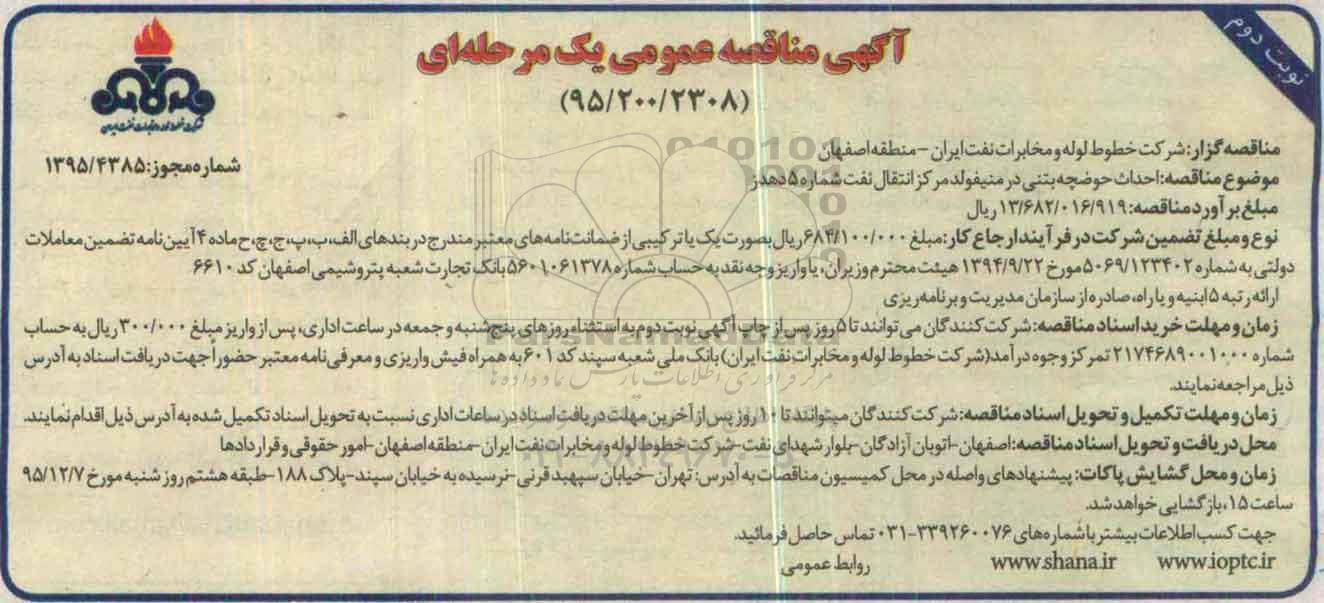 نوبت دوم
آگهی مناقصه عمومی یک مرحله‌ای
(۹۵/۲۰۰/۲۳۰۸)
شرکت خطوط لوله و مخابرات نفت ایران
شماره مجوز: ۱۳۹۵/۴۳۸۵
مناقصه گزار: شرکت خطوط لوله و مخابرات نفت ایران – منطقه اصفهان
موضوع مناقصه: احداث حوضچه بتنی در منیفولد مرکز انتقال نفت شماره ۵ دهدز
مبلغ برآورد مناقصه: ۱۳/۶۸۲/۰۱۶/۹۱۹ ریال
نوع و مبلغ تضمین شرکت در فرآیند ارجاع کار: مبلغ ۶۸۴/۱۰۰/۰۰۰ ریال بصورت یک یا ترکیبی از ضمانت‌نامه‌های معتبر مندرج در بندهای الف، ب، پ، ج، چ، ح ماده ۴ آیین‌نامه تضمین معاملات
دولتی به شماره ۵۰۶۹/۱۲۳۴۰۲ مورخ ۱۳۹۴/۹/۲۲ هیئت محترم وزیران، یا واریز وجه نقد به حساب شماره ۵۶۰۱۰۶۱۳۷۸ بانک تجارت شعبه پتروشیمی اصفهان کد ۶۶۱۰
ارائه رتبه ۵ ابنیه و یا راه، صادره از سازمان مدیریت و برنامه‌ریزی
زمان و مهلت خرید اسناد مناقصه: شرکت کنندگان می‌توانند تا ۵ روز پس از چاپ آگهی نوبت دوم به استثناء روزهای پنج‌شنبه و جمعه در ساعت اداری، پس از واریز مبلغ ۳۰۰/۰۰۰ ریال به حساب
شماره ۲۱۷۴۶۸۹۰۰۱۰۰۰ تمرکز وجوه درآمد (شرکت خطوط لوله و مخابرات نفت ایران) بانک ملی شعبه سپند کد ۶۰۱ به همراه فیش واریزی و معرفی‌نامه معتبر حضوراً جهت دریافت اسناد به آدرس
ذیل مراجعه نمایند.
زمان و مهلت تکمیل و تحویل اسناد مناقصه: شرکت کنندگان میتوانند تا ۱۰ روز پس از آخرین مهلت دریافت اسناد در ساعات اداری نسبت به تحویل اسناد تکمیل شده به آدرس ذیل اقدام نمایند.
محل دریافت و تحویل اسناد مناقصه: اصفهان-اتوبان آزادگان-بلوار شهدای نفت-شرکت خطوط لوله و مخابرات نفت ایران-منطقه اصفهان-امور حقوقی و قراردادها
زمان و محل گشایش پاکات: پیشنهادهای واصله در محل کمیسیون مناقصات به آدرس: تهران-خیابان سپهبد قرنی-نرسیده به خیابان سپند-پلاک ۱۸۸-طبقه هشتم روز شنبه مورخ ۹۵/۱۲/۷
ساعت ۱۵، بازگشایی خواهد شد.
جهت کسب اطلاعات بیشتر با شماره‌های ۳۳۹۲۶۰۰۷۶-۰۳۱ تماس حاصل فرمائید.
www.ioptc.ir www.shana.ir روابط عمومی
ParsNamadData
مرکز فرآوری اطلاعات پارس نماد داده‌ها